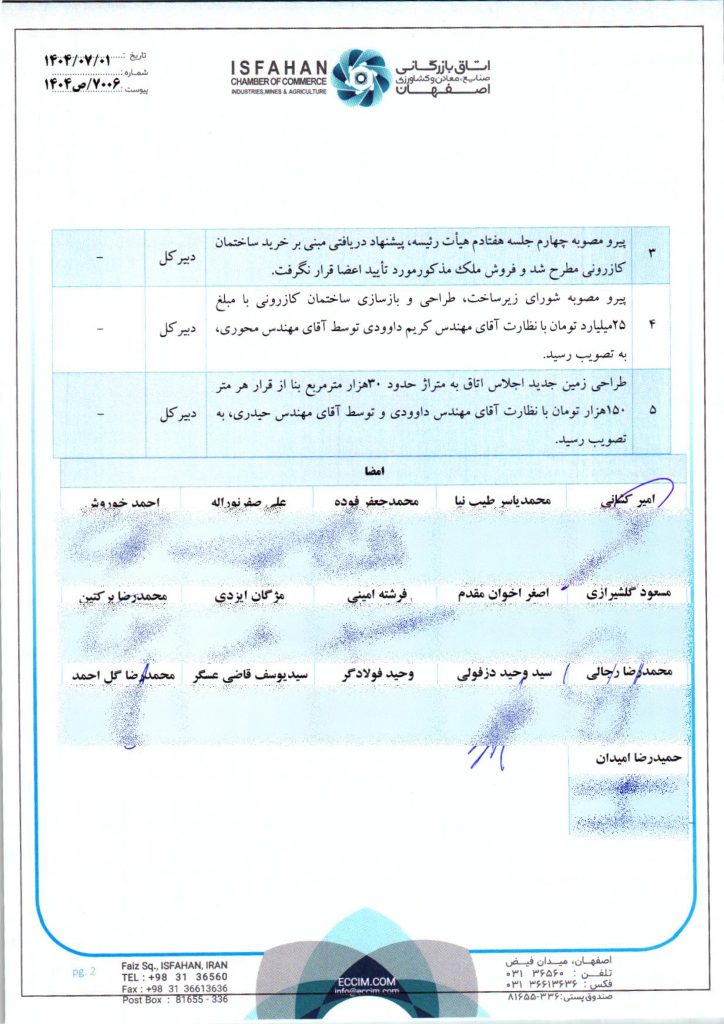 تاریخ : ۱۴۰۴/۰۷/۰۱
شماره :
پیوست : ۷۰۰۶/ص/۱۴۰۴
ISFAHAN
CHAMBER OF COMMERCE
INDUSTRIES, MINES & AGRICULTURE
اتاق بازرگانی
صنایع، معادن و کشاورزی
اصفهان
۳
پیرو مصوبه چهارم جلسه هفتادم هیأت رئیسه، پیشنهاد دریافتی مبنی بر خرید ساختمان
کازرونی مطرح شد و فروش ملک مذکورمورد تأیید اعضا قرار نگرفت.
دبیر کل
-
۴
پیرو مصوبه شورای زیرساخت، طراحی و بازسازی ساختمان کازرونی با مبلغ
۲۵میلیارد تومان با نظارت آقای مهندس کریم داوودی توسط آقای مهندس محوری،
به تصویب رسید.
دبیر کل
-
۵
طراحی زمین جدید اجلاس اتاق به متراژ حدود ۳۰هزار مترمربع بنا از قرار هر متر
۱۵۰هزار تومان با نظارت آقای مهندس داوودی و توسط آقای مهندس حیدری، به
تصویب رسید.
دبیر کل
-
امضا
امیر کشانی محمدیاسر طیب نیا محمدجعفر فوده علی صفرنوراله احمد خوروش
مسعود گلشیرازی اصغر اخوان مقدم فرشته امینی مژگان ایزدی محمدرضا برکتین
محمدرضا رجالی سید وحید دزفولی وحید فولادگر سیدیوسف قاضی عسگر محمدرضا گل احمد
حمیدرضا امیدان
pg. 2
Faiz Sq., ISFAHAN, IRAN
TEL : +98 31 36560
Fax : +98 31 36613636
Post Box : 81655 - 336
ECCIM.COM
info@eccim.com
اصفهان، میدان فیض
تلفن : ۳۶۵۶۰ ۰۳۱
فکس : ۳۶۶۱۳۶۳۶ ۰۳۱
صندوق پستی: ۳۳۶-۸۱۶۵۵